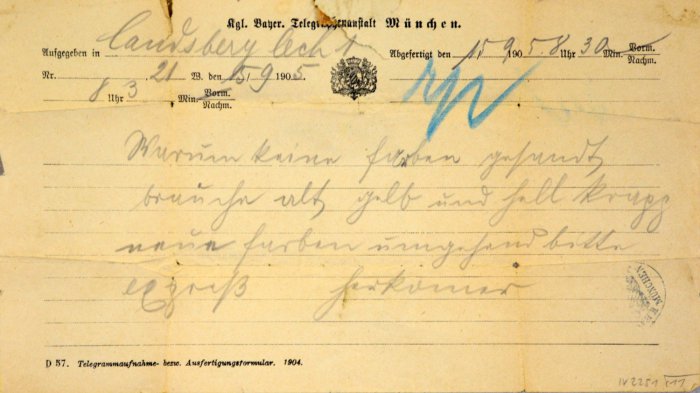 Kgl. Bayer. Telegraphenanstalt München.
Aufgegeben in Landsberg Lech 1 Abgefertigt den 15 9 1905. 8 Uhr 30 Min. Vorm. Nachm.
Nr. 21 W. den 15/9 1905.
8 Uhr 3 Min. Vorm. Nachm.
Warum keine farben gesandt
brauche alt gelb und hell Krapp
neue farben umgehend bitte
expreß herkomer
MÜNCHEN
D 57. Telegrammaufnahme- bezw. Ausfertigungsformular. 1904.
IV 2251